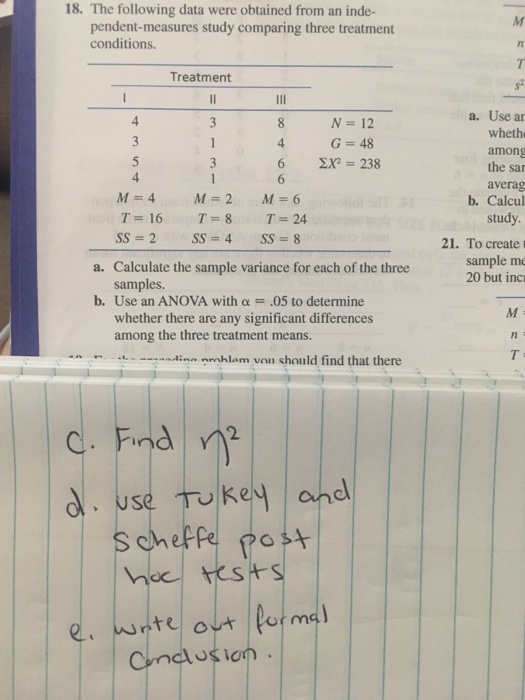 18. The following data were obtained from an inde-
pendent-measures study comparing three treatment
conditions.
Treatment
I II III
4 3 8 N = 12
3 1 4 G = 48
5 3 6 ΣX² = 238
4 1 6
M = 4 M = 2 M = 6
T = 16 T = 8 T = 24
SS = 2 SS = 4 SS = 8
a. Calculate the sample variance for each of the three
samples.
b. Use an ANOVA with α = .05 to determine
whether there are any significant differences
among the three treatment means.
problem you should find that there
M
n
T
s²
a. Use an
wheth
among
the sam
averag
b. Calcul
study.
21. To create
sample me
20 but incr
M =
n =
T =
C. Find η²
d. use Tukey and
Scheffe post
hoc tests
e. write out formal
Conclusion.